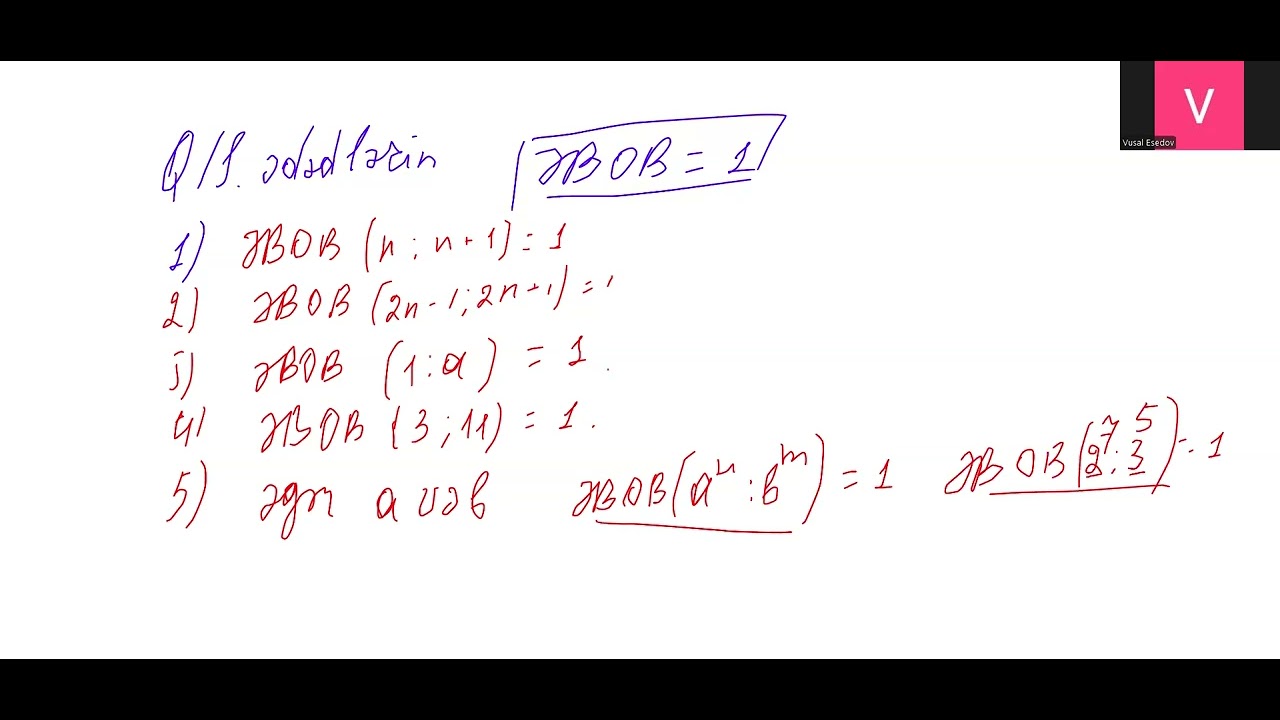 V
Vusal Esedov
Q/S. ədədlərin ƏBOB = 1
1) ƏBOB (n ; n+1) = 1
2) ƏBOB (2n-1 ; 2n+1) = 1
3) ƏBOB (1 : a) = 1
4) ƏBOB (3 ; 11) = 1.
5) a və b ƏBOB(aⁿ : bᵐ) = 1 ƏBOB(2⁷ : 3⁵) = 1